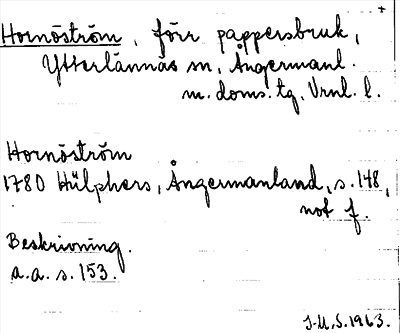 +
Hornöström, förr pappersbruk,
Ytterlännäs sn, Ångermanl.
m. doms. tg, Vrnl. l.
Hornöström
1780 Hülphers, Ångermanland, s. 148,
not f.
Beskrivning.
a.a. s. 153.
I.U.S. 1963.